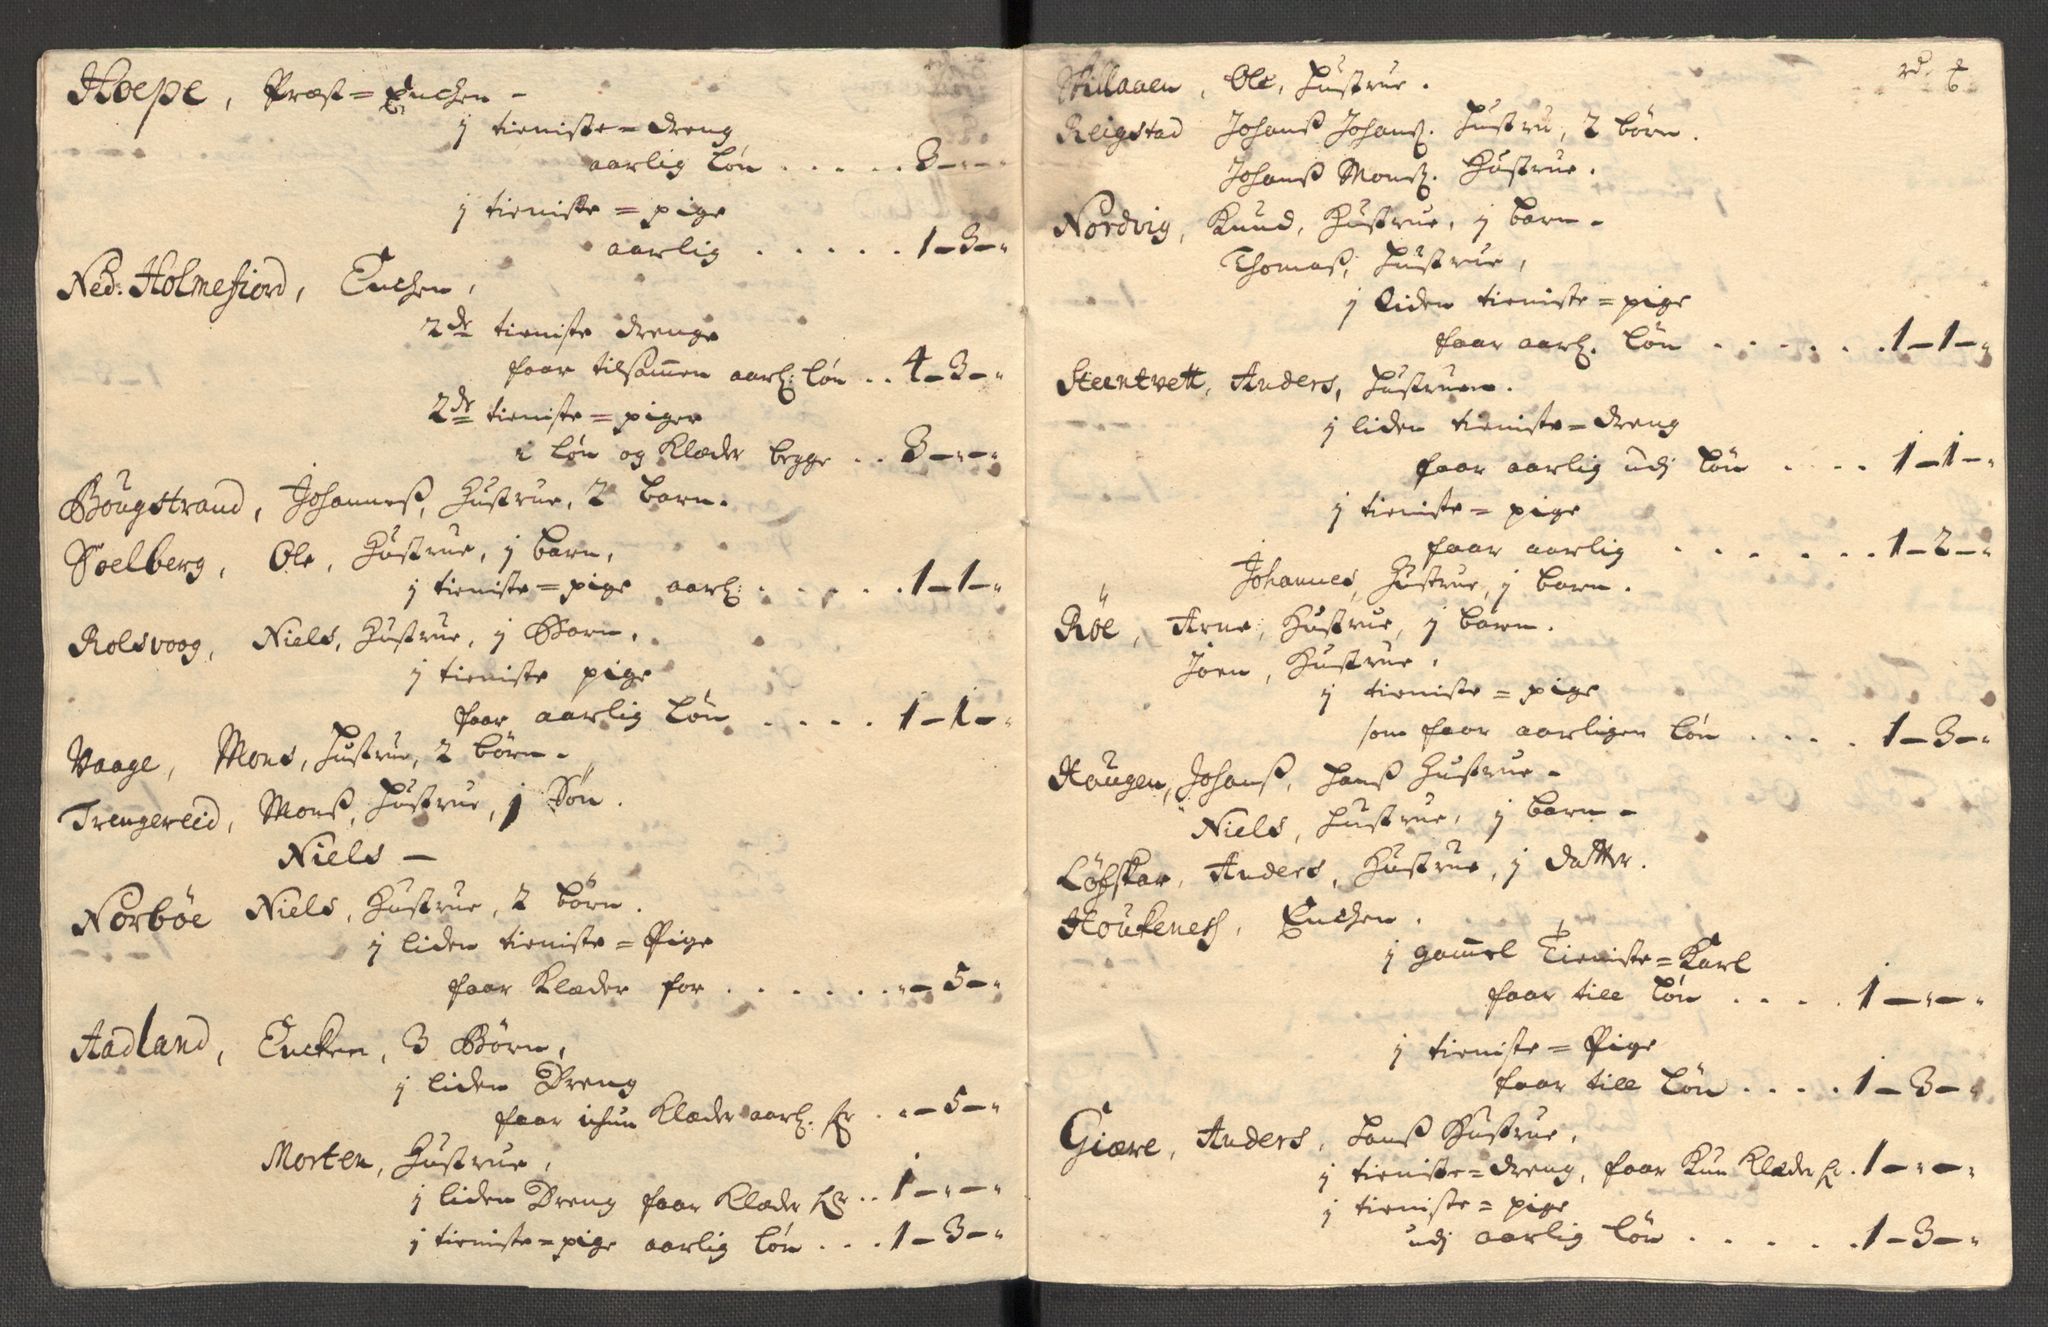 Hoepe, Præst=Enchen -
j tieniste=dreng
aarlig løn . . . . . 3-"-"
j tieniste=pige
aarlig . . . . . 1-3-"
Ned: Holmefiord, Enchen,
2de tieniste drenge
faar tilsammen aarl: løn . . 4-3-"
2de tieniste=piger
i løn og Klæder begge . . 3-"-"
Bougstrand, Johanneß, Hustrue, 2 barn.
Soelberg, Ole, Hustrue, j barn,
j tieniste=pige aarl: . . . . . 1-1-"
Rolsvoog, Niels, Hustrue, j Barn,
j tieniste pige
faar aarlig løn . . . . 1-1-"
Vaage, Mons, hustrue, 2 børn -
Trengereid, Monß, hustrue, j Søn.
Niels -
Norbøe Niels, Hustrue, 2 børn.
j liden tieniste=Pige
faar Klæder for . . . . . . "-5-"
Aadland, Encken, 3 Børn,
j liden Dreng
faar ichun Klæder aarl. for . "-5-"
Morten, Hustrue,
j liden Dreng faar Klæder for . . 1-"-"
j tieniste=pige aarlig løn . . . 1-3-"
rd. 6
Ole, Hustrue.
Reigstad Johanß Johanß. hustru, 2 børn.
Johanß Monß. Hustrue.
Nordvig, Knud, Hustrue, j barn -
Thomaß, hustrue,
j liden tieniste=pige
faar aarl. løn . . . . . . 1-1-"
Steentvett, Anders, hustruen.
j liden tieniste=dreng
faar aarlig udj løn . . . . 1-1-"
j tieniste=pige
faar aarlig . . . . . . 1-2-"
" Johannes, Hustrue, j barn.
Røe, Arne, Hustrue, j barn.
Joen, Hustrue.
j tieniste=pige
som faar aarligen løn . . . . 1-3-"
Haugen, Johanß, hanß Hustrue -
Niels, hustrue, j barn -
Løfskar, Anders, Hustrue, j datter.
Houkeneß, Enchen.
j gammel Tieniste=Karl
faar till løn . . . . 1-"-"
j tieniste=Pige
faar till løn . . . . 1-3-"
Giære, Anders, hanß Hustrue,
j tieniste=dreng, faar Kun Klæder for . 1-"-"
j tieniste=pige
udj aarlig løn . . . . . 1-3-"